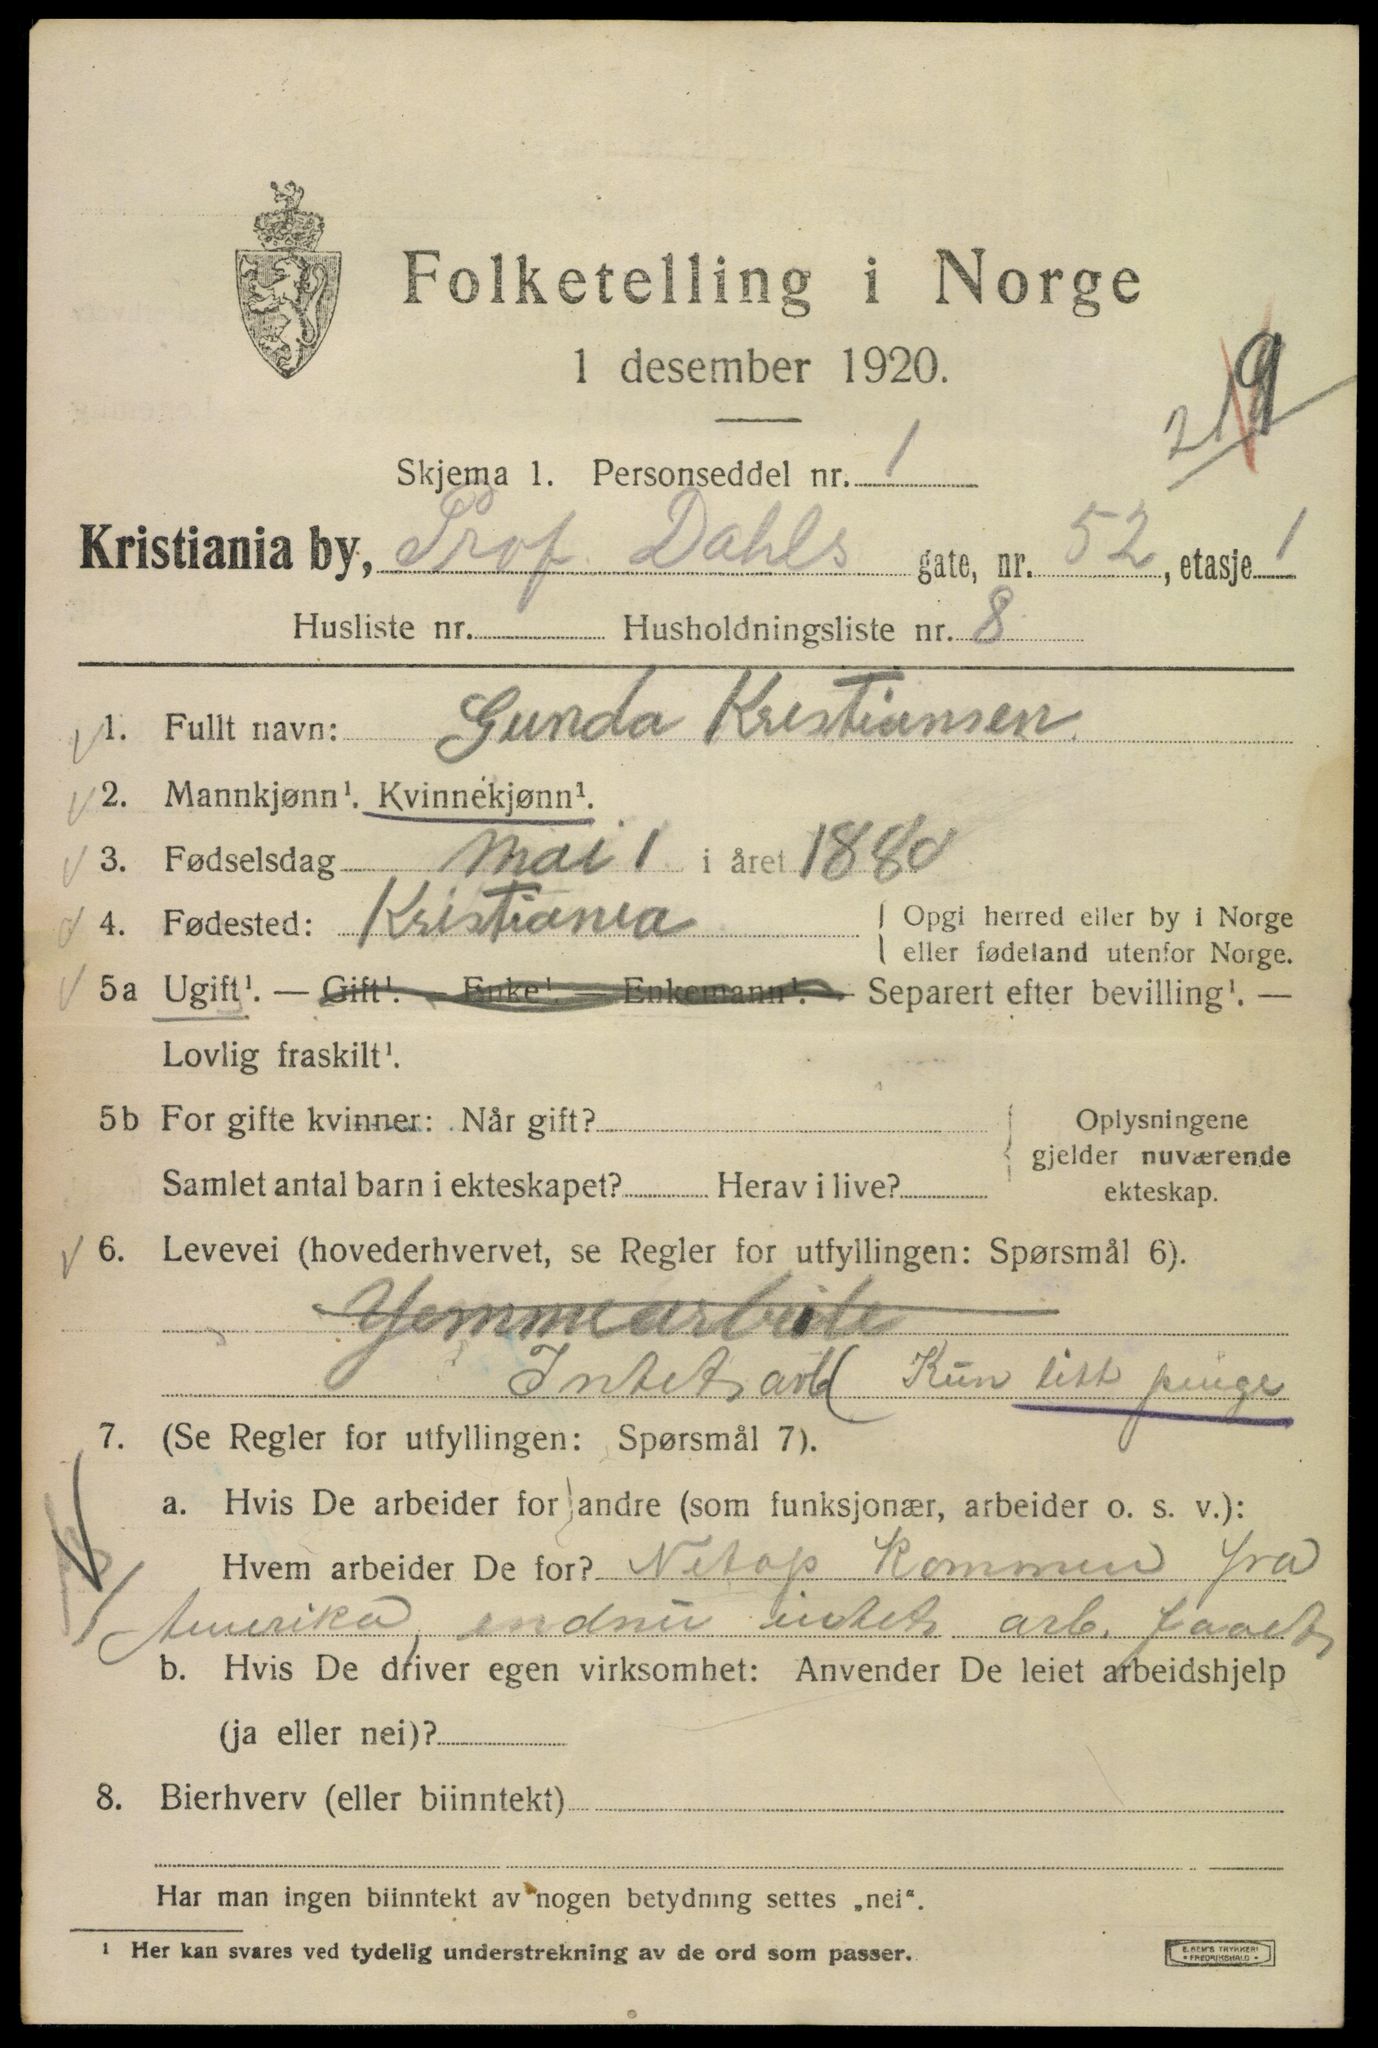 Folketelling i Norge
1 desember 1920.
219
Skjema 1. Personseddel nr. 1
Kristiania by, Prof Dahls gate, nr. 52, etasje 1
Husliste nr. Husholdningsliste nr. 8
1. Fullt navn: Gunda Kristiansen
2. Mannkjønn¹. Kvinnekjønn¹.
3. Fødselsdag mai 1 i året 1880
4. Fødested: Kristiania Opgi herred eller by i Norge
eller fødeland utenfor Norge.
5a Ugift¹. — Gift¹. — Enke¹. — Enkemann¹. — Separert efter bevilling¹. —
Lovlig fraskilt¹.
5b For gifte kvinner: Når gift? Oplysningene
gjelder nuværende
Samlet antal barn i ekteskapet? Herav i live? ekteskap.
6. Levevei (hovederhvervet, se Regler for utfyllingen: Spørsmål 6).
Intet arb Kun litt penge
7. (Se Regler for utfyllingen: Spørsmål 7).
a. Hvis De arbeider for andre (som funksjonær, arbeider o. s. v.):
Hvem arbeider De for? Netop kommen fra
Amerika, endnu intet arb. faaet
b. Hvis De driver egen virksomhet: Anvender De leiet arbeidshjelp
(ja eller nei)?
8. Bierhverv (eller biinntekt)
Har man ingen biinntekt av nogen betydning settes „nei“.
¹ Her kan svares ved tydelig understrekning av de ord som passer.
E. SEM'S TRYKKERI
• FREDRIKSHALD •